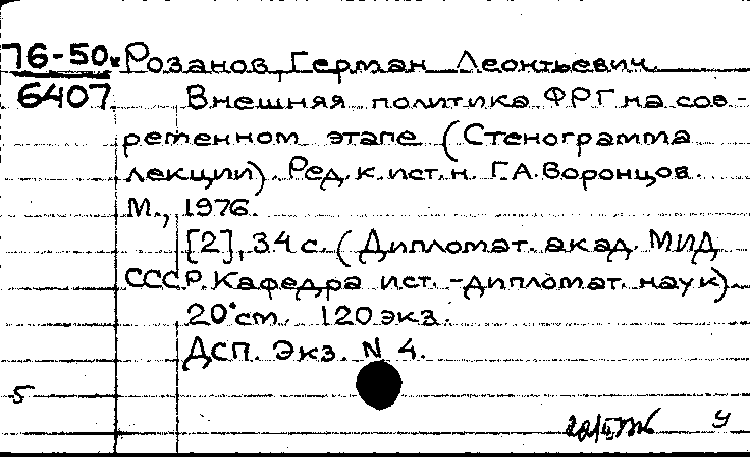 76-50к Розанов, Герман Леонтьевич
6407 Внешняя политика ФРГ на сов-
ременном этапе (Стенограмма
лекции). Ред. к. ист. н. Г.А. Воронцов.
М., 1976.
[2], 34 с. (Дипломат. акад. МИД
СССР. Кафедра ист.-дипломат. наук).
20 см. 120 экз.
ДСП. Экз. N 4.
5
У